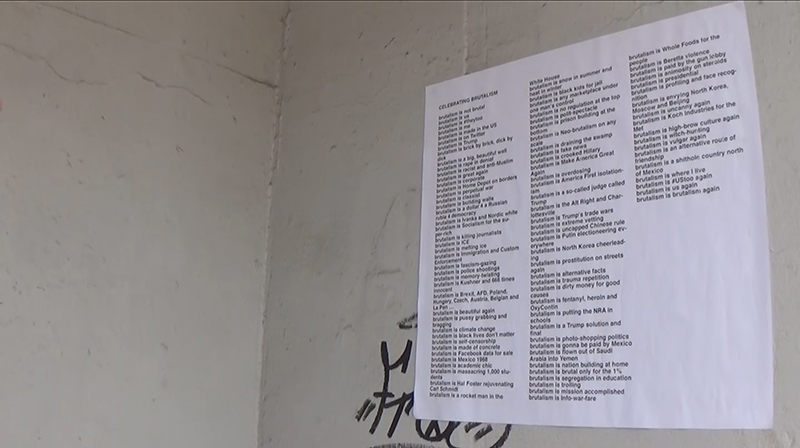 CELEBRATING BRUTALISM
brutalism is not brutal
brutalism is us
brutalism is #meytoo
brutalism is me
brutalism is made in the US
brutalism is on Twitter
brutalism is Trump
brutalism is brick by brick, dick by
dick
brutalism is a big, beautiful wall
brutalism is rape in denial
brutalism is racist and anti-Muslim
brutalism is great again
brutalism is corporate
brutalism is Home Depot on borders
brutalism is perpetual war
brutalism is classist
brutalism is building walls
brutalism is a dollar & a Russian
ruble & democracy
brutalism is Ivanka and Nordic white
brutalism is Socialism for the su-
per-rich
brutalism is killing journalists
brutalism is ICE
brutalism is melting ice
brutalism is Immigration and Custom
Enforcement
brutalism is fascism-gazing
brutalism is police shootings
brutalism is memory-twisting
brutalism is Kushner and 666 times
innocent
brutalism is Brexit, AFD, Poland,
Hungary, Czech, Austria, Belgian and
Le Pen
brutalism is beautiful again
brutalism is pussy grabbing and
bragging
brutalism is climate change
brutalism is black lives don't matter
brutalism is self-censorship
brutalism is made of concrete
brutalism is Facebook data for sale
brutalism is Mexico 1968
brutalism is academic chic
brutalism is massacring 1,000 stu-
dents
brutalism is Hal Foster rejuvenating
Carl Schmidt
brutalism is a rocket man in the
White House
brutalism is snow in summer and
heat in winter
brutalism is black kids for jail
brutalism is any marketplace under
one man's control
brutalism is no regulation at the top
brutalism is polit-spectacle
brutalism is prison building at the
bottom
brutalism is Neo-brutalism on any
scale
brutalism is draining the swamp
brutalism is fake news
brutalism is crooked Hillary
brutalism is Make America Great
Again
brutalism is overdosing
brutalism is America First isolation-
ism
brutalism is a so-called judge called
Trump
brutalism is the Alt Right and Char-
lottesville
brutalism is Trump's trade wars
brutalism is extreme vetting
brutalism is uncapped Chinese rule
brutalism is Putin electioneering ev-
erywhere
brutalism is North Korea cheerlead-
ing
brutalism is prostitution on streets
again
brutalism is alternative facts
brutalism is trauma repetition
brutalism is dirty money for good
causes
brutalism is fentanyl, heroin and
OxyContin
brutalism is putting the NRA in
schools
brutalism is a Trump solution and
final
brutalism is photo-shopping politics
brutalism is gonna be paid by Mexico
brutalism is flown out of Saudi
Arabia into Yemen
brutalism is nation building at home
brutalism is brutal only for the 1%
brutalism is segregation in education
brutalism is trolling
brutalism is mission accomplished
brutalism is Info-war-fare
brutalism is Whole Foods for the
people
brutalism is Beretta violence
brutalism is paid by the gun lobby
brutalism is animosity on steroids
brutalism is presidential
brutalism is profiling and face recog-
nition
brutalism is envying North Korea,
Moscow and Beijing
brutalism is uncanny again
brutalism is Koch Industries for the
Met
brutalism is high-brow culture again
brutalism is witch-hunting
brutalism is vulgar again
brutalism is on alternative route of
friendship
brutalism is a shithole country north
of Mexico
brutalism is where I live
brutalism is #UStoo again
brutalism is us again
brutalism is brutalism again